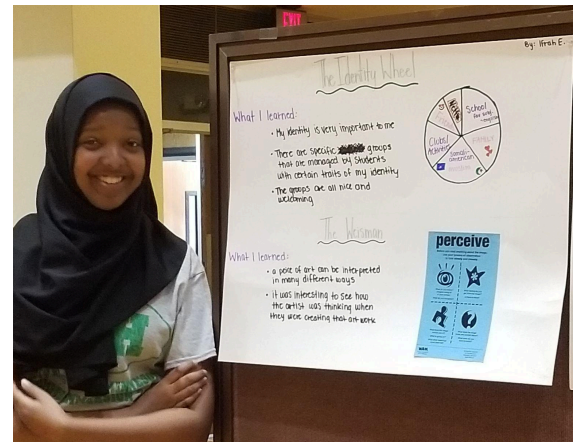 EXIT
By: Ifrah E.
The Identity Wheel
What I learned:
• My identity is very important to me
• There are specific groups
that are managed by students
with certain traits of my identity
• The groups are all nice and
welcoming
School
Clubs/
Activities
Somali-
american
The Weisman
What I learned:
• a peice of art can be interpreted
in many different ways
• it was interesting to see how
the artist was thinking when
they were creating that art work
perceive